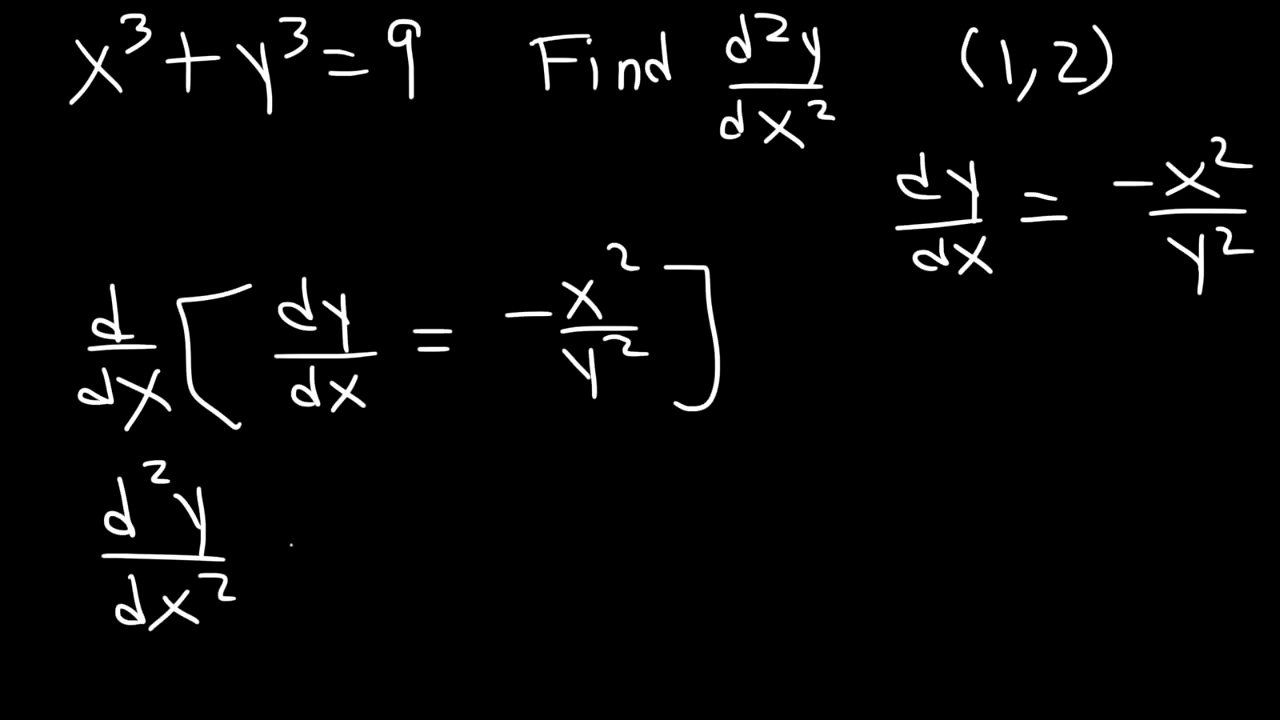 x³ + y³ = 9 Find d²y/dx² (1,2)
dy/dx = -x²/y²
d/dx [ dy/dx = -x²/y² ]
d²y/dx²